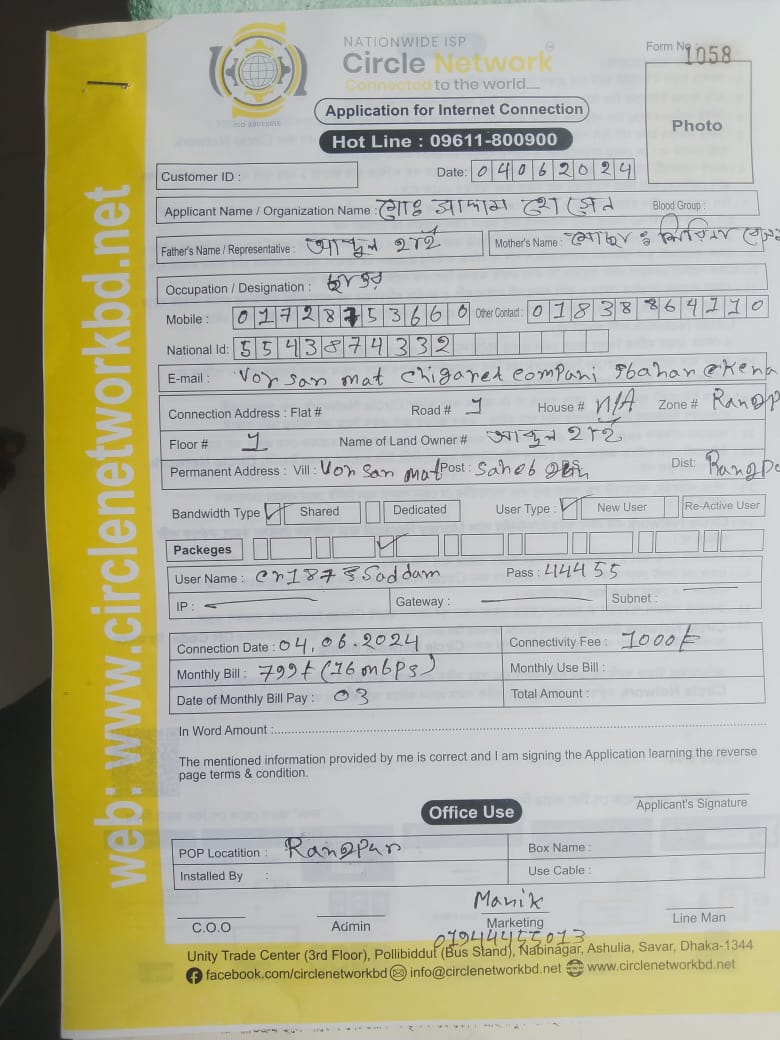 NATIONWIDE ISP
Circle Network
Connected to the world....
ISO 9001:2015
Form No 1058
Photo
Application for Internet Connection
Hot Line : 09611-800900
Customer ID :
Date: 04062024
Applicant Name / Organization Name : মোঃ সাদ্দাম হোসেন Blood Group :
Father's Name / Representative : আব্দুল হাই Mother's Name : মোছাঃ
Occupation / Designation :
Mobile : 01728753660 Other Contact : 01838864110
National Id: 5543874332
E-mail : Vorsan mat chigaret compani
Connection Address : Flat # Road # 1 House # N/A Zone # Rangp
Floor # 1 Name of Land Owner # আব্দুল হাই
Permanent Address : Vill : Vorsan mat Post : Saheb Dist: Rangpo
Bandwidth Type Shared Dedicated User Type : New User Re-Active User
Packeges
User Name : Saddam Pass : 44455
IP : Gateway : Subnet :
Connection Date : 04.06.2024 Connectivity Fee : 1000৳
Monthly Bill : 799৳ (16mbps) Monthly Use Bill :
Date of Monthly Bill Pay : 03 Total Amount :
In Word Amount :
The mentioned information provided by me is correct and I am signing the Application learning the reverse
page terms & condition.
Applicant's Signature
Office Use
POP Locatition : Rangpur Box Name :
Installed By : Use Cable :
Manik
C.O.O Admin Marketing Line Man
01944455013
Unity Trade Center (3rd Floor), Pollibiddut (Bus Stand), Nabinagar, Ashulia, Savar, Dhaka-1344
facebook.com/circlenetworkbd info@circlenetworkbd.net www.circlenetworkbd.net
web: www.circlenetworkbd.net